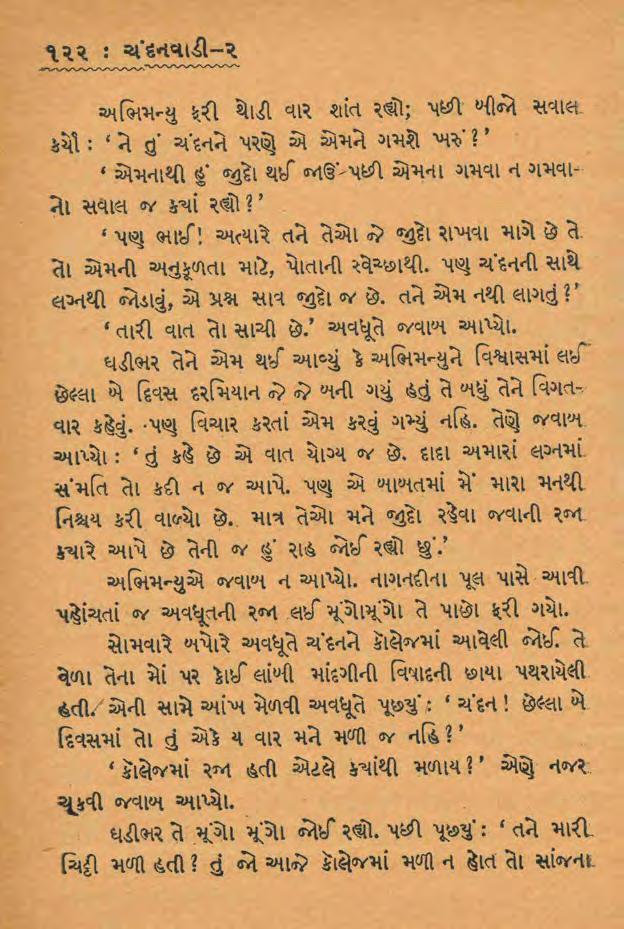 ૧૨૨ : ચંદનવાડી–૨
અભિમન્યુ ફરી થોડી વાર શાંત રહ્યો; પછી બીજો સવાલ
કર્યો : ‘ ને તું ચંદનને પરણે એ એમને ગમશે ખરું ?’
‘ એમનાથી હું જુદો થઈ જાઉં પછી એમના ગમવા ન ગમવા-
નો સવાલ જ ક્યાં રહ્યો ?’
‘ પણ ભાઈ! અત્યારે તને તેઓ જે જુદો રાખવા માગે છે તે
તો એમની અનુકૂળતા માટે, પોતાની સ્વેચ્છાથી. પણ ચંદનની સાથે
લગ્નથી જોડાવું, એ પ્રશ્ન સાવ જુદો જ છે. તને એમ નથી લાગતું ?’
‘ તારી વાત તો સાચી છે.’ અવધૂતે જવાબ આપ્યો.
ઘડીભર તેને એમ થઈ આવ્યું કે અભિમન્યુને વિશ્વાસમાં લઈ
છેલ્લા બે દિવસ દરમિયાન જે જે બની ગયું હતું તે બધું તેને વિગત-
વાર કહેવું. પણ વિચાર કરતાં એમ કરવું ગમ્યું નહિ. તેણે જવાબ
આપ્યો : ‘ તું કહે છે એ વાત યોગ્ય જ છે. દાદા અમારાં લગ્નમાં
સંમતિ તો કદી ન જ આપે. પણ એ બાબતમાં મેં મારા મનથી
નિશ્ચય કરી વાળ્યો છે. માત્ર તેઓ મને જુદો રહેવા જવાની રજા
ક્યારે આપે છે તેની જ હું રાહ જોઈ રહ્યો છું.’
અભિમન્યુએ જવાબ ન આપ્યો. નાગનદીના પૂલ પાસે આવી
પહોંચતાં જ અવધૂતની રજા લઈ મૂંગોમૂંગો તે પાછો ફરી ગયો.
સોમવારે બપોરે અવધૂતે ચંદનને કૉલેજમાં આવેલી જોઈ. તે
વેળા તેના મોં પર કોઈ લાંબી માંદગીની વિષાદની છાયા પથરાયેલી
હતી. એની સામે આંખ મેળવી અવધૂતે પૂછ્યું : ‘ ચંદન ! છેલ્લા બે
દિવસમાં તો તું એકે ય વાર મને મળી જ નહિ ?’
‘ કૉલેજમાં રજા હતી એટલે ક્યાંથી મળાય ?’ એણે નજર
ચૂકવી જવાબ આપ્યો.
ઘડીભર તે મૂંગો મૂંગો જોઈ રહ્યો. પછી પૂછ્યું : ‘ તને મારી
ચિઠ્ઠી મળી હતી ? તું જો આજે કૉલેજમાં મળી ન હોત તો સાંજના